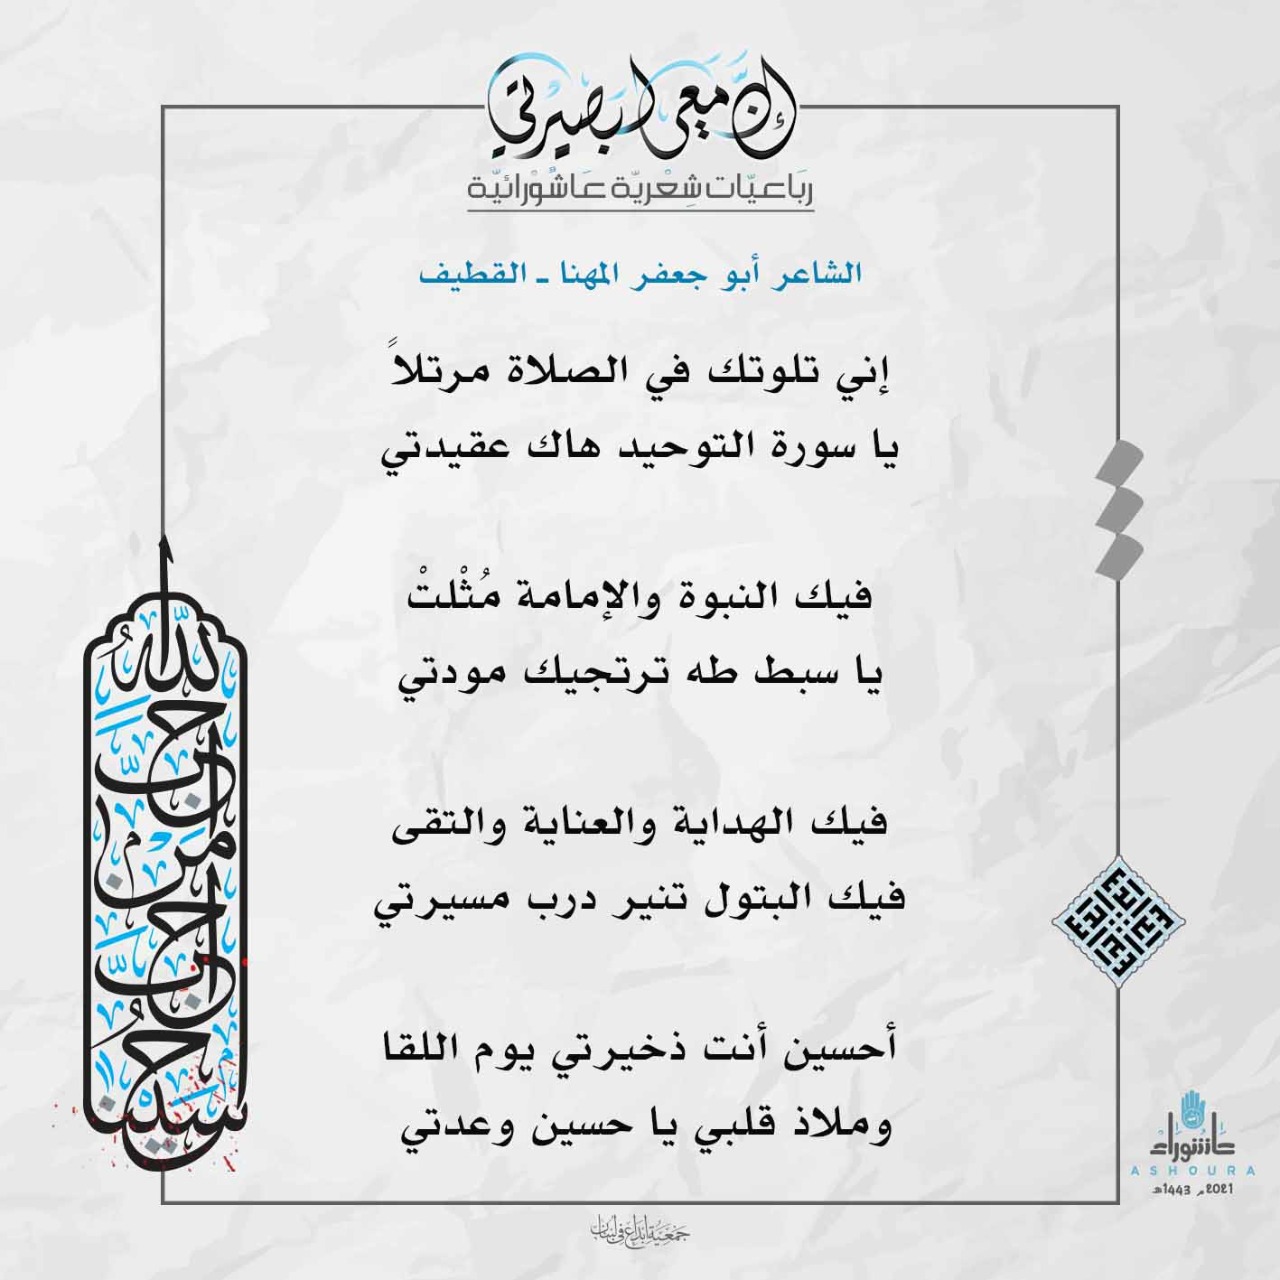 إنَّ معي لبصيرتي
رباعيّات شِعْريّة عَاشُوْرائيّة
الشاعر أبو جعفر المهنا ـ القطيف
إني تلوتك في الصلاة مرتلاً
يا سورة التوحيد هاك عقيدتي
فيك النبوة والإمامة مُثْلتْ
يا سبط طه ترتجيك مودتي
فيك الهداية والعناية والتقى
فيك البتول تنير درب مسيرتي
أحسين أنت ذخيرتي يوم اللقا
وملاذ قلبي يا حسين وعدتي
أحبَّ اللهُ من أحبَّ حُسَيْنا
عاشوراء
ASHOURA
2021م 1443هـ
جمعية إبداع في لبنان